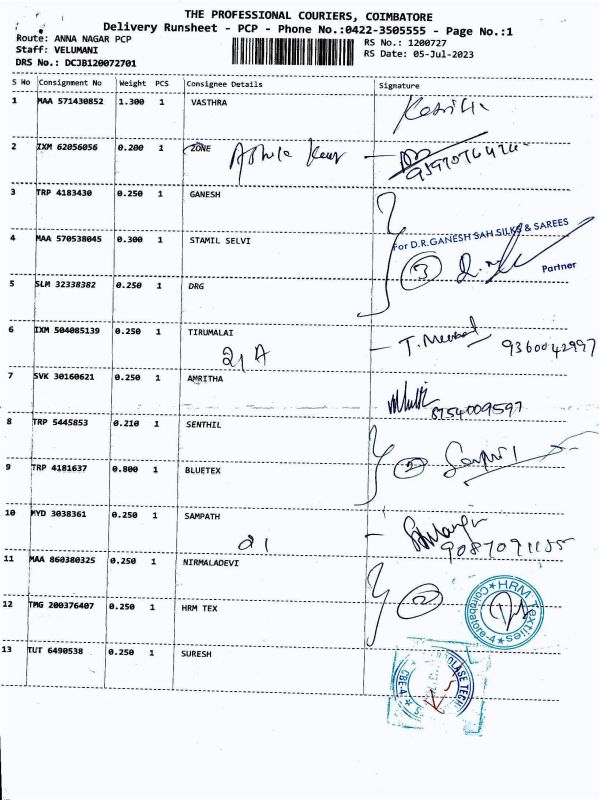 THE PROFESSIONAL COURIERS, COIMBATORE
Delivery Runsheet - PCP - Phone No.:0422-3505555 - Page No.:1
Route: ANNA NAGAR PCP
RS No.: 1200727
Staff: VELUMANI
RS Date: 05-Jul-2023
DRS No.: DCJB120072701
S No Consignment No Weight PCS Consignee Details Signature
1 MAA 571430852 1.300 1 VASTHRA
2 IXM 62056056 0.200 1 ZONE
3 TRP 4183430 0.250 1 GANESH
For D.R.GANESH SAH SILKS & SAREES
4 MAA 570538045 0.300 1 STAMIL SELVI
3
Partner
5 SLM 32338382 0.250 1 DRG
6 IXM 504085139 0.250 1 TIRUMALAI
21 A
9360042997
7 SVK 30160621 0.250 1 AMRITHA
8754009597
8 TRP 5445853 0.210 1 SENTHIL
2
9 TRP 4181637 0.800 1 BLUETEX
10 MYD 3038361 0.250 1 SAMPATH
21
11 MAA 860380325 0.250 1 NIRMALADEVI
2
HRM Textiles
12 TMG 200376407 0.250 1 HRM TEX
13 TUT 6490538 0.250 1 SURESH
CBE-4